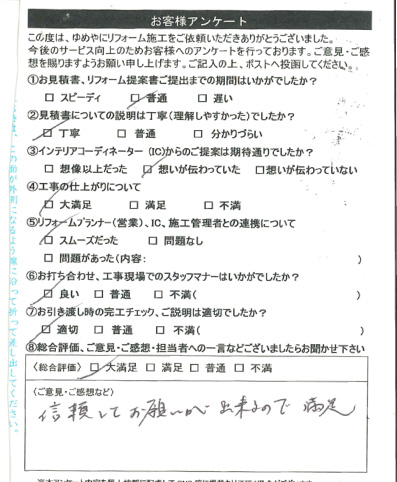 お客様アンケート
この度は、ゆめやにリフォーム施工をご依頼いただきありがとうございました。
今後のサービス向上のためお客様へのアンケートを行っております。ご意見・ご感
想を賜りますようお願い申し上げます。ご記入の上、ポストへ投函してください。
①お見積書、リフォーム提案書ご提出までの期間はいかがでしたか？
□ スピーディ □ 普通 □ 遅い
②見積書についての説明は丁寧（理解しやすかった）でしたか？
□ 丁寧 □ 普通 □ 分かりづらい
③インテリアコーディネーター（IC）からのご提案は期待通りでしたか？
□ 想像以上だった □ 想いが伝わっていた □想いが伝わっていない
④工事の仕上がりについて
□ 大満足 □ 満足 □ 不満
⑤リフォームプランナー（営業）、IC、施工管理者との連携について
□ スムーズだった □ 問題なし
□ 問題があった（内容： ）
⑥お打ち合わせ、工事現場でのスタッフマナーはいかがでしたか？
□ 良い □ 普通 □ 不満（ ）
⑦お引き渡し時の完工チェック、ご説明は適切でしたか？
□ 適切 □ 普通 □ 不満（ ）
⑧総合評価、ご意見・ご感想・担当者への一言などございましたらお聞かせ下さい
〈総合評価〉 □ 大満足 □ 満足 □ 普通 □ 不満
〈ご意見・ご感想など〉
信頼してお願いが出来るので 満足
この面が外側になるよう線に沿って折って差し出してください。